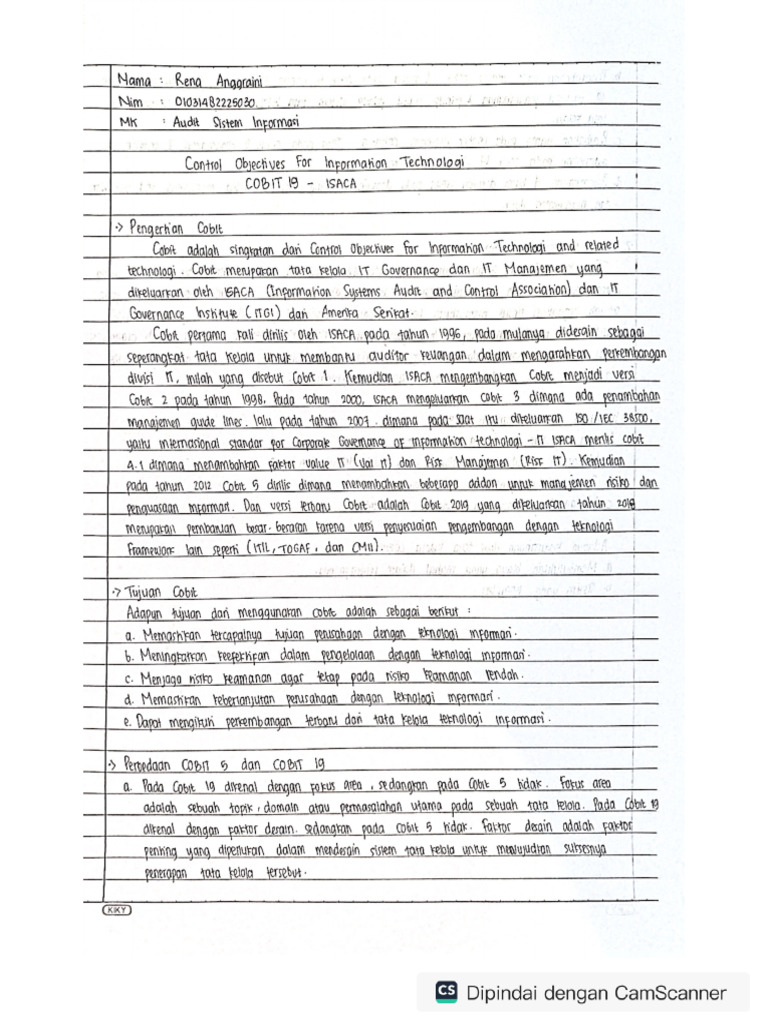 Nama : Rena Anggraini
Nim : 01031482225030
MK : Audit Sistem Informasi
Control Objectives For Information Technologi
COBIT 19 - ISACA
-> Pengertian Cobit
Cobit adalah singkatan dari Control Objectives for Information Technologi and related
technologi. Cobit merupakan tata kelola IT Governance dan IT Manajemen yang
dikeluarkan oleh ISACA (Information Systems Audit and Control Association) dan IT
Governance Institute (ITGI) dari Amerika Serikat.
Cobit pertama kali dirilis oleh ISACA pada tahun 1996, pada mulanya didesain sebagai
seperangkat tata kelola untuk membantu auditor keuangan dalam mengarahkan perkembangan
divisi IT, inilah yang disebut Cobit 1. Kemudian ISACA mengembangkan Cobit menjadi versi
Cobit 2 pada tahun 1998. Pada tahun 2000, ISACA mengeluarkan cobit 3 dimana ada penambahan
manajemen guide lines. lalu pada tahun 2007. dimana pada saat itu dikeluarkan ISO/IEC 38500,
yaitu internasional standar for Corporate Governance of information technologi - IT ISACA merilis cobit
4.1 dimana menambahkan faktor value IT (Val IT) dan Risk Manajemen (Risk IT). Kemudian
pada tahun 2012 Cobit 5 dirilis dimana menambahkan beberapa addon untuk manajemen risiko dan
penguasaan informasi. Dan versi terbaru Cobit adalah Cobit 2019 yang dikeluarkan tahun 2018
merupakan pembaruan besar-besaran karena versi penyesuaian pengembangan dengan teknologi
Framework lain seperti (ITIL, TOGAF, dan CMII).
-> Tujuan Cobit
Adapun tujuan dari menggunakan cobit adalah sebagai berikut :
a. Memastikan tercapainya tujuan perusahaan dengan teknologi informasi.
b. Meningkatkan keefektifan dalam pengelolaan dengan teknologi informasi.
c. Menjaga risiko keamanan agar tetap pada risiko keamanan rendah.
d. Memastikan keberlanjutan perusahaan dengan teknologi informasi.
e. Dapat mengikuti perkembangan terbaru dari tata kelola teknologi informasi.
-> Perbedaan COBIT 5 dan COBIT 19
a. Pada Cobit 19 dikenal dengan fokus area, sedangkan pada Cobit 5 tidak. Fokus area
adalah sebuah topik, domain atau permasalahan utama pada sebuah tata kelola. Pada Cobit 19
dikenal dengan faktor desain. sedangkan pada cobit 5 tidak. faktor desain adalah faktor
penting yang diperlukan dalam mendesain sistem tata kelola untuk mewujudkan suksesnya
penerapan tata kelola tersebut.
KKY
CS Dipindai dengan CamScanner